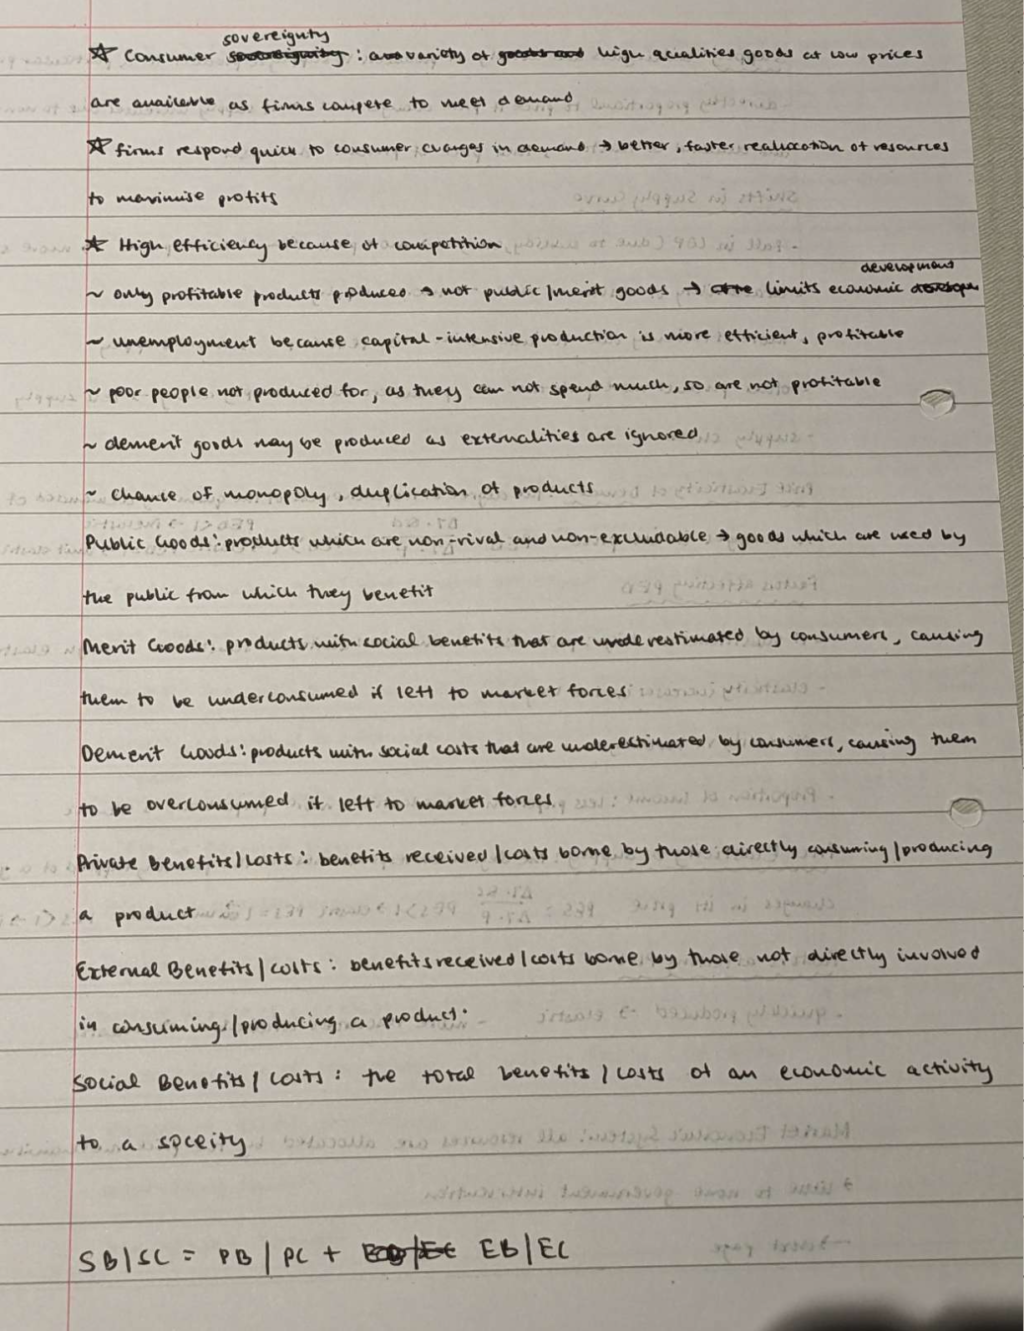 ☆ Consumer sovereignty : variety of high qualities goods at low prices
are available as firms compete to meet demand
☆ firms respond quick to consumer changes in demand → better, faster reallocation of resources
to maximise profits
☆ High efficiency because of competition
~ only profitable products produced → not public/merit goods → limits economic development
~ unemployment because capital-intensive production is more efficient, profitable
~ poor people not produced for, as they can not spend much, so are not profitable
~ demerit goods may be produced as externalities are ignored
~ chance of monopoly, duplication of products
Public Goods: products which are non-rival and non-excludable → goods which are used by
the public from which they benefit
Merit Goods: products with social benefits that are underestimated by consumers, causing
them to be underconsumed if left to market forces
Demerit Goods: products with social costs that are underestimated by consumers, causing them
to be overconsumed if left to market forces
Private Benefits/Costs: benefits received/costs borne by those directly consuming/producing
a product
External Benefits/Costs: benefits received/costs borne by those not directly involved
in consuming/producing a product.
Social Benefits/Costs: the total benefits/costs of an economic activity
to a soceity
SB/SC = PB/PC + EB/EC